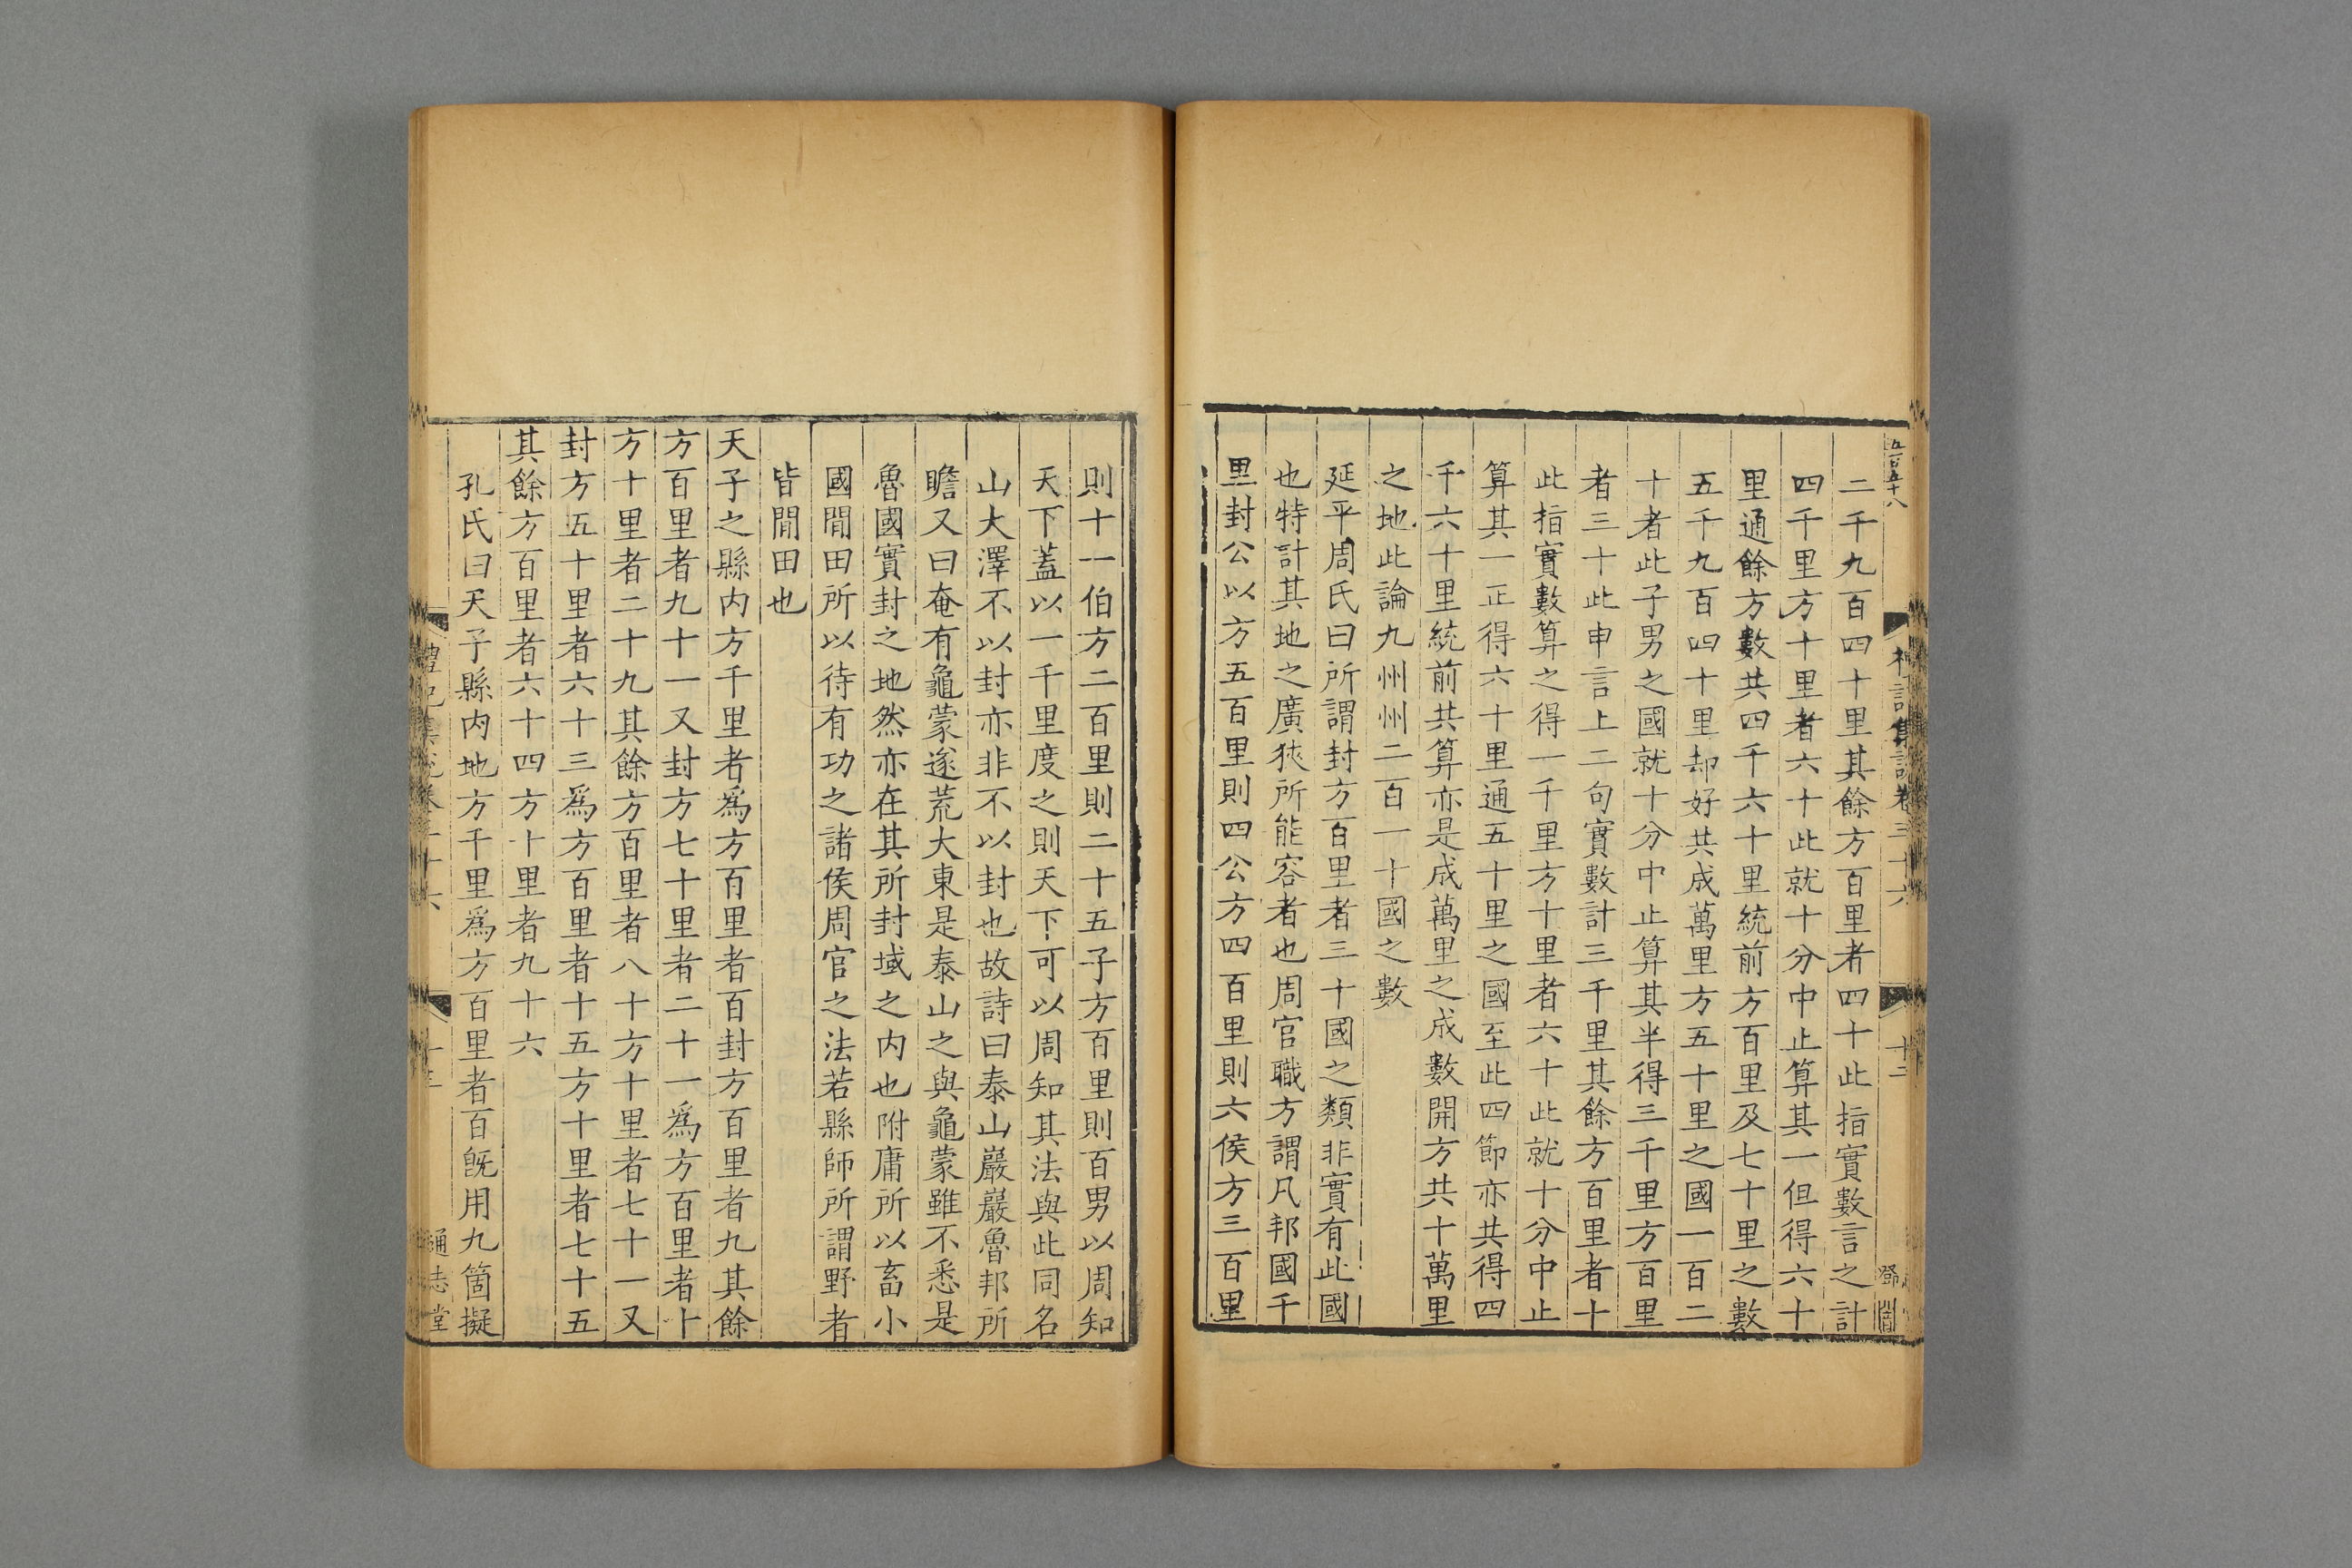 五百五十八
禮記集說卷三十六
十二
二千九百四十里其餘方百里者四十此指實數言之計
四千里方十里者六十此就十分中止算其一但得六十
里通餘方數共四千六十里統前方百里及七十里之數
五千九百四十里却好共成萬里方五十里之國一百二
十者此子男之國就十分中止算其半得三千里方百里
者三十此申言上二句實數計三千里其餘方百里者十
此指實數算之得一千里方十里者六十此就十分中止
算其一正得六十里通五十里之國至此四節亦共得四
千六十里統前共算亦是成萬里之成數開方共十萬里
之地此論九州州二百一十國之數
延平周氏曰所謂封方百里者三十國之類非實有此國
也特計其地之廣狹所能容者也周官職方謂凡邦國千
里封公以方五百里則四公方四百里則六侯方三百里
則十一伯方二百里則二十五子方百里則百男以周知
天下蓋以一千里度之則天下可以周知其法與此同名
山大澤不以封亦非不以封也故詩曰泰山巖巖魯邦所
瞻又曰奄有龜蒙遂荒大東是泰山之與龜蒙雖不悉是
魯國實封之地然亦在其所封域之内也附庸所以畜小
國閒田所以待有功之諸侯周官之法若縣師所謂野者
皆閒田也
天子之縣内方千里者爲方百里者百封方百里者九其餘
方百里者九十一又封方七十里者二十一爲方百里者十
方十里者二十九其餘方百里者八十方十里者七十一又
封方五十里者六十三爲方百里者十五方十里者七十五
其餘方百里者六十四方十里者九十六
孔氏曰天子縣内地方千里爲方百里者百旣用九箇擬
禮記集說卷三十六
十三
通志堂